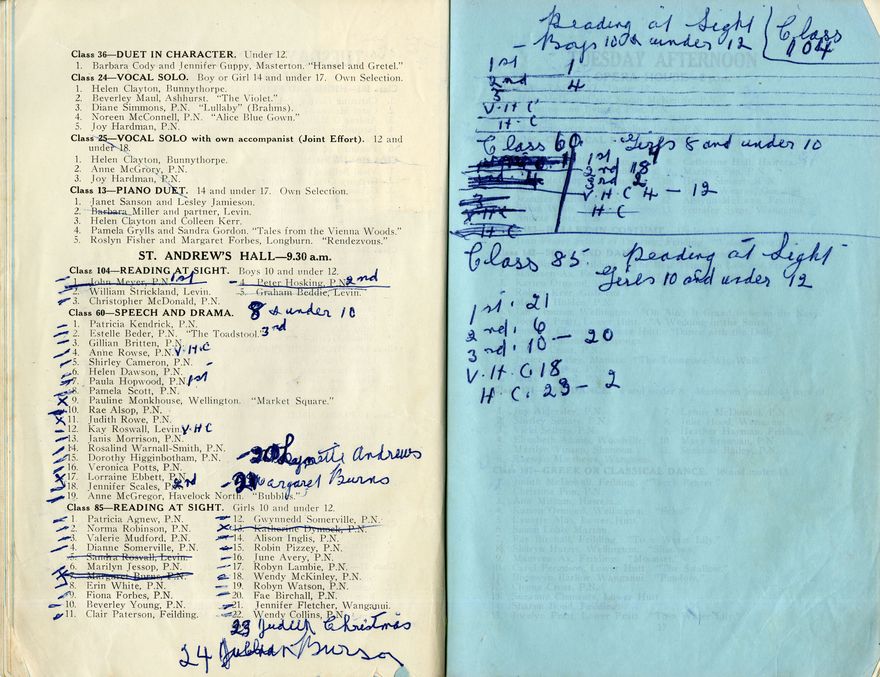 Class 36—DUET IN CHARACTER. Under 12.
1. Barbara Cody and Jennifer Guppy, Masterton. "Hansel and Gretel."
Class 24—VOCAL SOLO. Boy or Girl 14 and under 17. Own Selection.
1. Helen Clayton, Bunnythorpe.
2. Beverley Maul, Ashhurst. "The Violet."
3. Diane Simmons, P.N. "Lullaby" (Brahms).
4. Noreen McConnell, P.N. "Alice Blue Gown."
5. Joy Hardman, P.N.
Class 25—VOCAL SOLO with own accompanist (Joint Effort). 12 and
under 18.
1. Helen Clayton, Bunnythorpe.
2. Anne McGrory, P.N.
3. Joy Hardman, P.N.
Class 13—PIANO DUET. 14 and under 17. Own Selection.
1. Janet Sanson and Lesley Jamieson.
2. Barbara Miller and partner, Levin.
3. Helen Clayton and Colleen Kerr.
4. Pamela Grylls and Sandra Gordon. "Tales from the Vienna Woods."
5. Roslyn Fisher and Margaret Forbes, Longburn. "Rendezvous."
ST. ANDREW'S HALL—9.30 a.m.
Class 104—READING AT SIGHT. Boys 10 and under 12.
1. John Meyer, P.N. 1st
2. William Strickland, Levin.
3. Christopher McDonald, P.N.
4. Peter Hosking, P.N. 2nd
5. Graham Beddie, Levin.
Class 60—SPEECH AND DRAMA. 8 & under 10
1. Patricia Kendrick, P.N.
2. Estelle Beder, P.N. "The Toadstool." 3rd
3. Gillian Britten, P.N.
4. Anne Rowse, P.N. V.H.C
5. Shirley Cameron, P.N.
6. Helen Dawson, P.N.
7. Paula Hopwood, P.N. 1st
8. Pamela Scott, P.N.
9. Pauline Monkhouse, Wellington. "Market Square."
10. Rae Alsop, P.N.
11. Judith Rowe, P.N.
12. Kay Roswall, Levin. V.H.C
13. Janis Morrison, P.N.
14. Rosalind Warnall-Smith, P.N.
15. Dorothy Higginbotham, P.N.
16. Veronica Potts, P.N.
17. Lorraine Ebbett, P.N.
18. Jennifer Scales, P.N. 2nd
19. Anne McGregor, Havelock North. "Bubbles."
- 20 Lynette Andrews
- 21 Margaret Burns
Class 85—READING AT SIGHT. Girls 10 and under 12.
1. Patricia Agnew, P.N.
2. Norma Robinson, P.N.
3. Valerie Mudford, P.N.
4. Dianne Somerville, P.N.
5. Sandra Rosvall, Levin.
6. Marilyn Jessop, P.N.
7. Margaret Burns, P.N.
8. Erin White, P.N.
9. Fiona Forbes, P.N.
10. Beverley Young, P.N.
11. Clair Paterson, Feilding.
12. Gwynnedd Somerville, P.N.
13. Katherine Dymock, P.N.
14. Alison Inglis, P.N.
15. Robin Pizzey, P.N.
16. June Avery, P.N.
17. Robyn Lambie, P.N.
18. Wendy McKinley, P.N.
19. Robyn Watson, P.N.
20. Fae Birchall, P.N.
21. Jennifer Fletcher, Wanganui.
22. Wendy Collins, P.N.
23 Judith Christmas
24
Reading at Sight
- Boys 10 & under 12
Class
104
1st 1
2nd 4
3
V.H C
H. C
Class 60. Girls 8 and under 10
1st 7
2nd 18
3rd 2
V.H C 4 - 12
H C
Class 85. Reading at Sight
Girls 10 and under 12
1st. 21
2nd. 6
3rd. 10 - 20
V.H.C. 18
H.C. 23 - 2